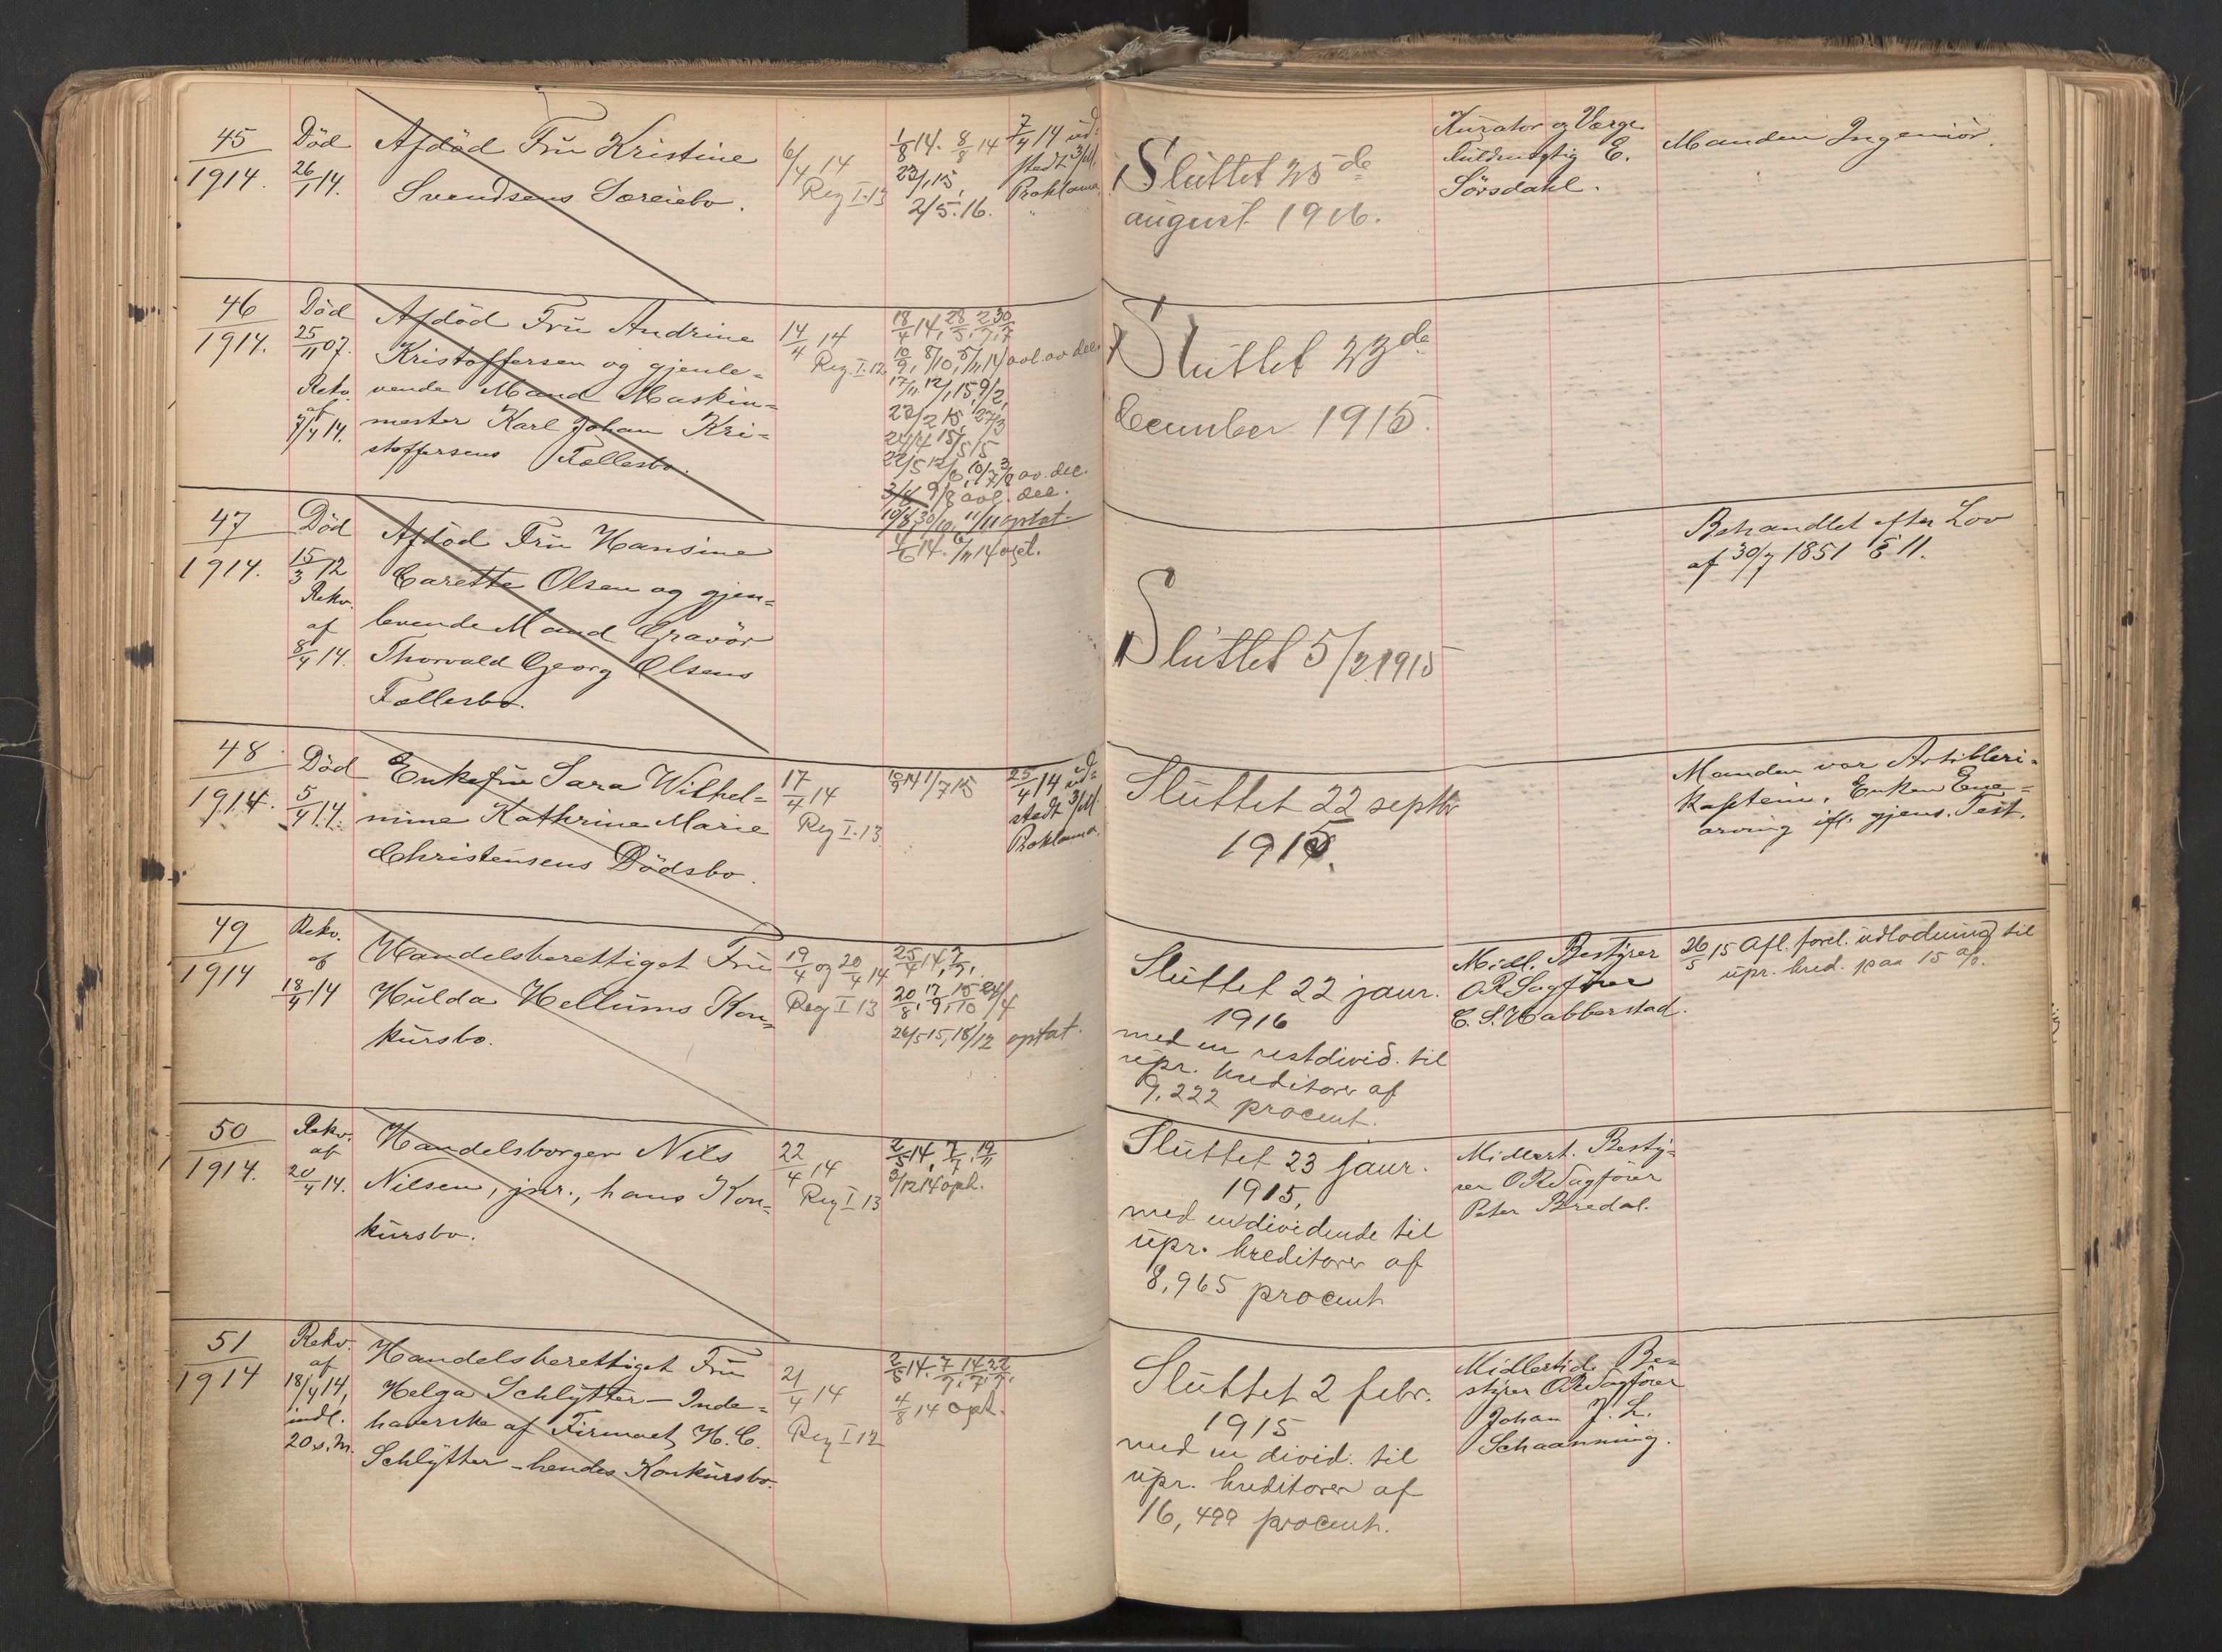 45
1914.
Död
26/1 14.
Afdød Fru Kristine
Svendsens Særeiebo.
6/4 14
Reg I.13
1/8 14. 8/8 14
23/1 15,
2/5. 16.
7/4 14 ud-
stedt 3/M.
Proklama.
Sluttet 25de
august 1916.
Kurator og Værge
Fuldmægtig E.
Sörsdahl.
Manden Ingeniör.
46
1914.
Död
25/11 07.
Rekv.
af
7/4 14.
Afdød Fru Andrine
Kristoffersen og gjenle-
vende Mand Maskin-
mester Karl Johan Kri-
stoffersens Fællesbo.
14/4 14
Reg I.12
18/4 14,
10/9, 8/10,
Sluttet 23de
december 1915.
47
1914.
Död
15/3 12
Rekv.
af
8/4 14.
Afdød Fru Hansine
Carette Olsen og gjen-
levende Mand Gravör
Thorvald Georg Olsens
Fællesbo.
4/6 14. 6/11 14 opt.
Sluttet 5/2 1915
Behandlet efter Lov
af 30/7 1851 § 11.
48
1914.
Död
5/4 14.
Enkefru Sara Wilhel-
mine Kathrine Marie
Christensens Dödsbo.
17/4 14
Reg I.13
10/9 14 1/7 15
25/4 14 ud-
stedt 3/M.
Proklama.
Sluttet 22 septbr
1915.
Manden var Artilleri-
kaptein. Enken Ene-
arving ifl. gjens. Test.
49
1914
Rekv.
af
18/4 14
Handelsberettiget Fru
Hulda Hellums Kon-
kursbo.
19/4 og 20/4 14
Reg I 13
25/4 14,
26/5 15, 18/12 optat.
Sluttet 22 janr.
1916
med en restdivid. til
upr. kreditorer af
9,222 procent.
Midl. Bestyrer
ORSagförer
C. S. Habberstad.
26/5 15 Afl. forel. udlodning til
upr. kred. paa 15 %.
50
1914.
Rekv.
af
20/4 14.
Handelsborger Nils
Nilsen, jnr., hans Kon-
kursbo.
22/4 14
Reg I 13
2/5 14, 7/7, 19/11
3/12 14 oph.
Sluttet 23 janr.
1915,
med en dividende til
upr. kreditorer af
8,965 procent
Midlert. Besty-
rer ORSagförer
Peter Bredal.
51
1914
Rekv.
af
18/4 14,
indl.
20 s. M.
Handelsberettiget Fru
Helga Schlytter – Inde-
haverske af Firmaet H. C.
Schlytter – hendes Konkursbo.
21/4 14
Reg I 12
2/5 14. 7/7, 14/7, 22/7,
4/8 14 opt.
Sluttet 2 febr.
1915
med en divid. til
upr. kreditorer af
16,499 procent.
Midlertid. Be-
styrer ORSagförer
Johan J. L.
Schaanning.